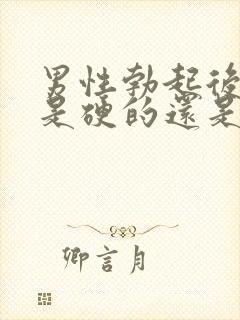 男性勃起後
是硬的還是
卿言月